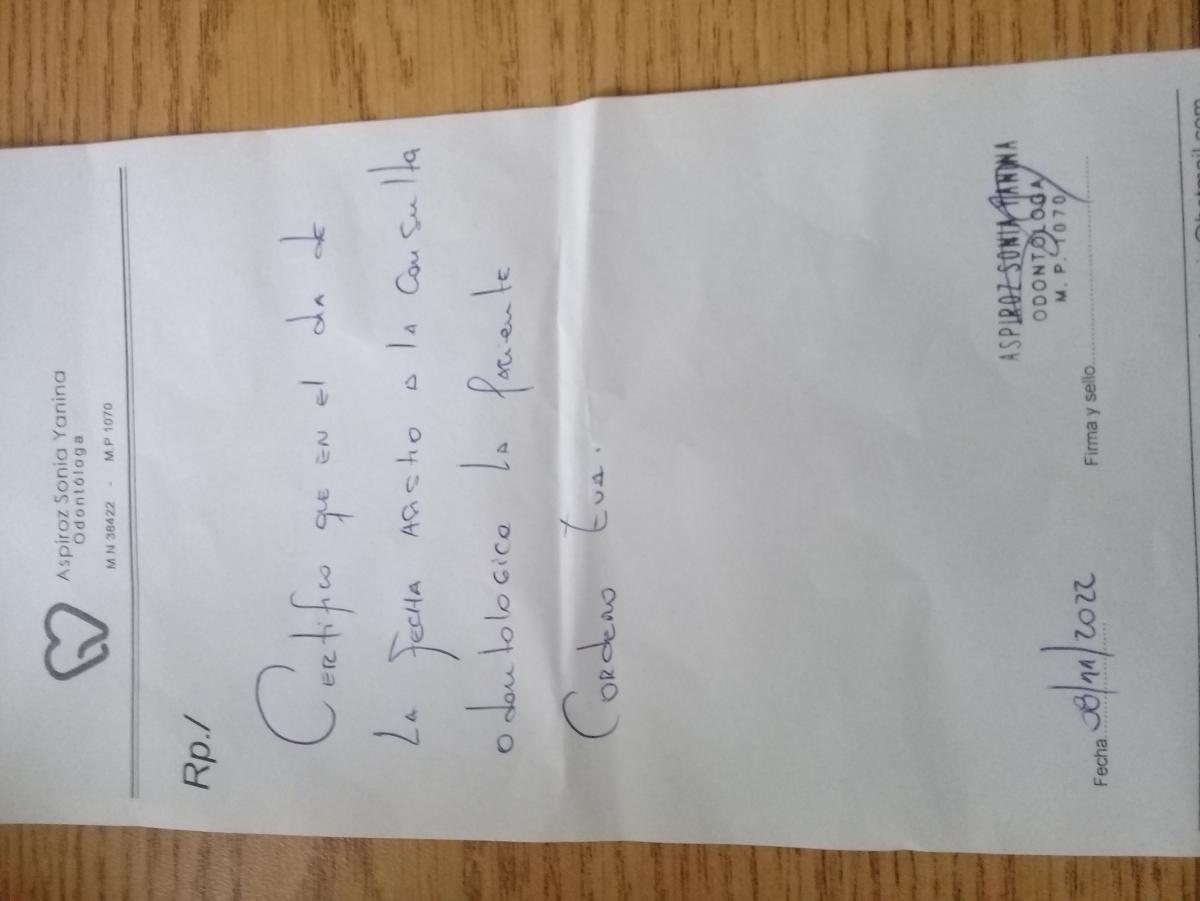 Aspiroz Sonia Yanina
Odontóloga
M.N 38422 - M.P 1070
Rp./
Certifico que en el dia de
la fecha asistio a la consulta
odontologica la paciente
Cordero Eva.
ASPIROZ SONIA YANINA
ODONTOLOGA
M. P. 1070
Fecha 08/11/2022 Firma y sello